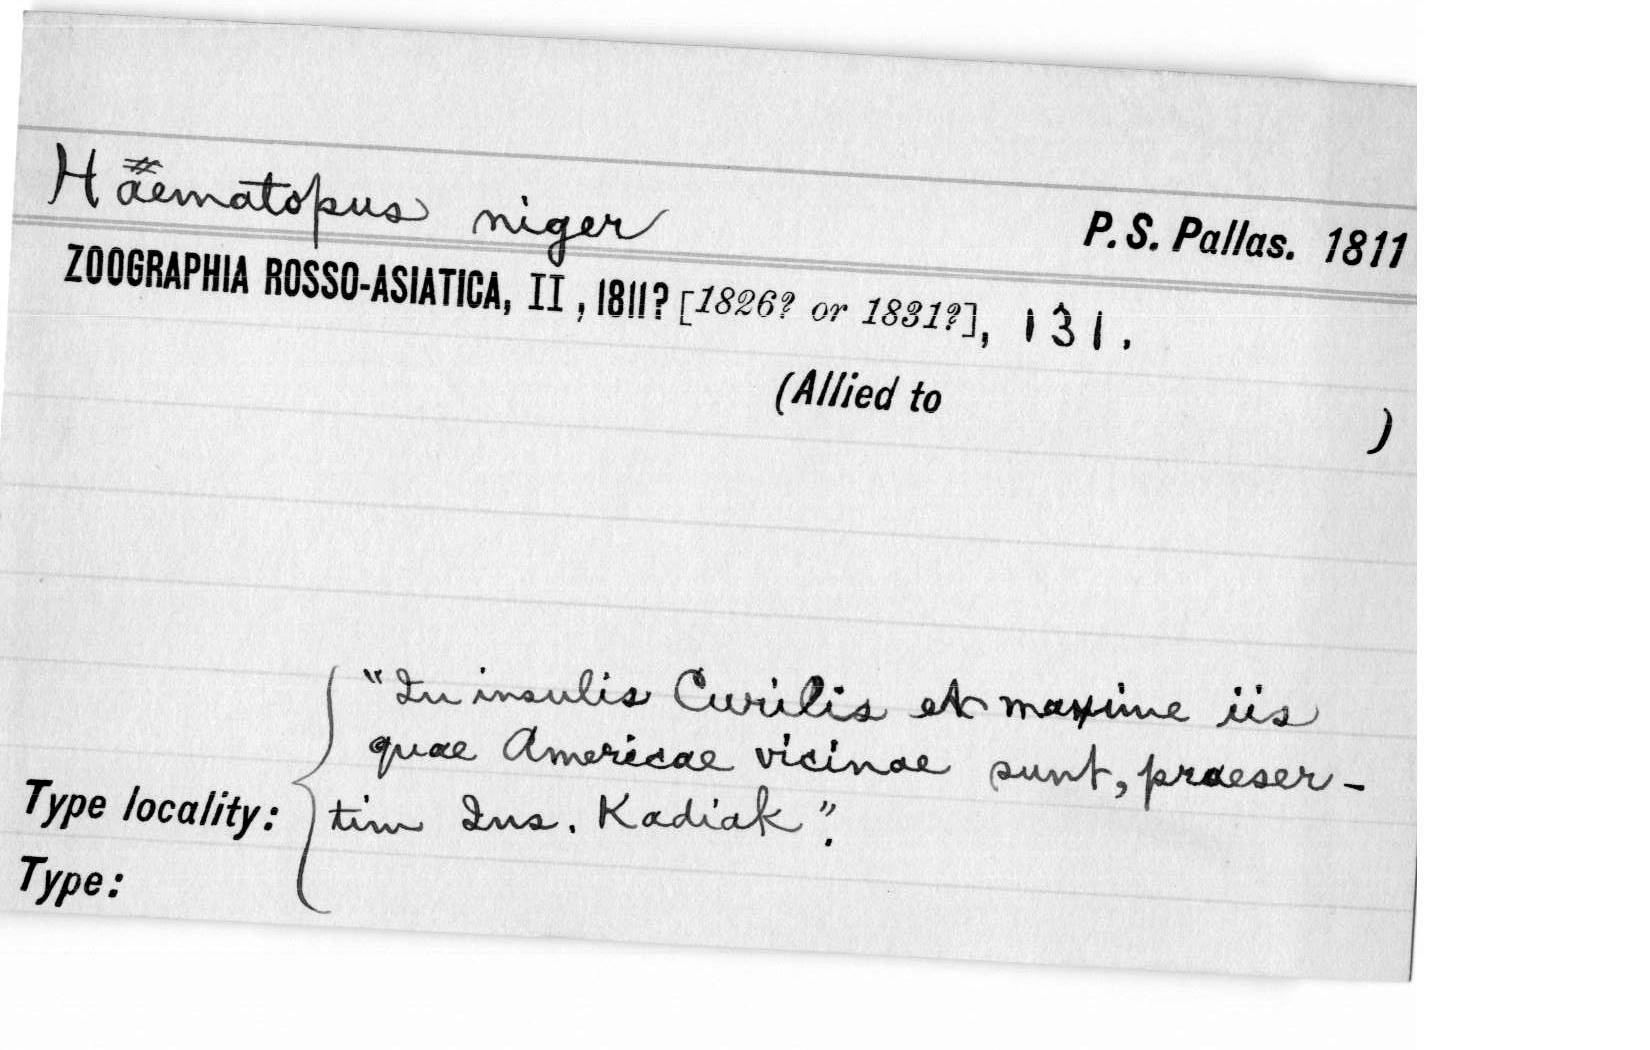 Haematopus niger
P. S. Pallas. 1811
ZOOGRAPHIA ROSSO-ASIATICA, II, 1811? [1826? or 1831?], 131.
(Allied to )
"In insulis Curilis et maxime iis
quae Americae vicinae sunt, praeser-
Type locality: tim Ins. Kadiak".
Type: